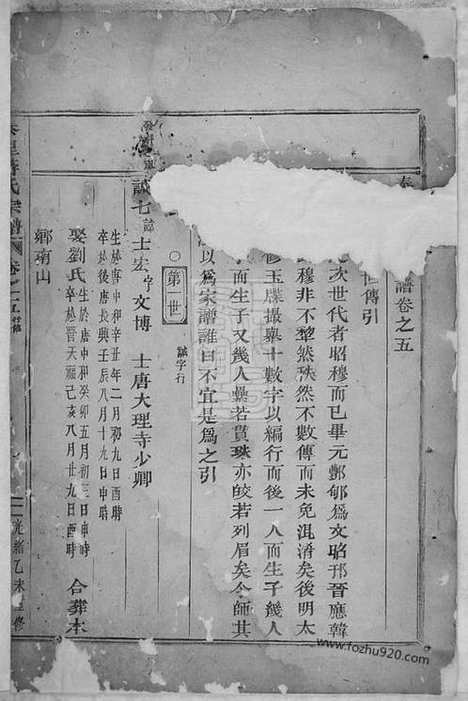 譜卷之五
世傳引
次世代者昭穆而已畢元酆郇爲文昭邘晉應韓
穆非不犂然秩然不數傳而未免混淆矣後明太
修玉牒撮舉十數字以編行而後一人而生子幾人
而生子又幾人纍若貫珠亦皎若列眉矣今師其
以爲家譜誰曰不宜是爲之引
○第一世 誠字行
誠七 諱士宏字文博 士唐大理寺少卿
生於唐中和辛丑年二月初九日酉時
卒於後唐長興壬辰八月十九日申時
娶劉氏 生於唐中和癸卯五月初三日申時
卒於晉天福己亥八月廿九日酉時 合葬本
鄉南山
氏宗譜 卷之五
光緒乙未重修
www.fozhu920.com